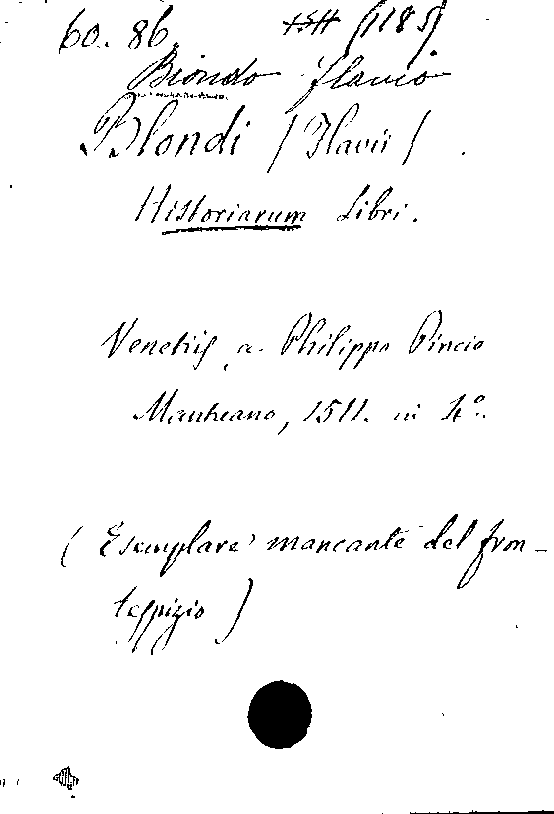 60. 86. 1511 (1185)
Biondo Flavio
Blondi (Flavii).
Historiarum Libri.
Venetiis, a Philippo Pincio
Mantuano, 1511. in 4°.
(Esemplare mancante del fron-
tespizio)